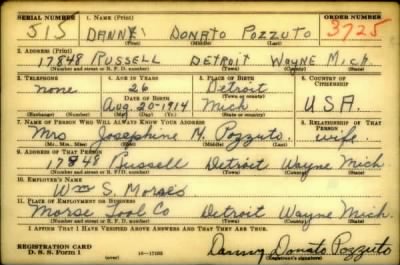 SERIAL NUMBER 1. NAME (Print) ORDER NUMBER
515 DANNY DONATO POZZUTO 3725
(First) (Middle) (Last)
2. ADDRESS (Print)
17848 RUSSELL DETROIT WAYNE MICH.
(Number and street or R. F. D. number) (Town) (County) (State)
3. TELEPHONE 4. AGE IN YEARS 5. PLACE OF BIRTH 6. COUNTRY OF CITIZENSHIP
none 26 Detroit
DATE OF BIRTH (Town or county)
Aug. 20-1914 Mich U.S.A.
(Exchange) (No.) (Mo.) (Day) (Yr.) (State or country)
7. NAME OF PERSON WHO WILL ALWAYS KNOW YOUR ADDRESS 8. RELATIONSHIP OF THAT PERSON
Mrs Josephine M. Pozzuto. wife.
(Mr., Mrs., Miss) (First) (Middle) (Last)
9. ADDRESS OF THAT PERSON
17848 Russell Detroit Wayne Mich
(Number and street or R. F. D. number) (Town) (County) (State)
10. EMPLOYER'S NAME
Wm S. Morses
11. PLACE OF EMPLOYMENT OR BUSINESS
Morse Tool Co Detroit Wayne Mich.
(Number and street or R. F. D. number) (Town) (County) (State)
I AFFIRM THAT I HAVE VERIFIED ABOVE ANSWERS AND THAT THEY ARE TRUE.
REGISTRATION CARD
D. S. S. Form 1 (over) Danny Donato Pozzuto
(Registrant's signature)